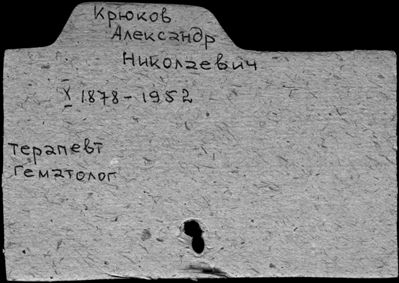 Крюков
Александр
Николаевич
X 1878-1952
терапевт
гематолог